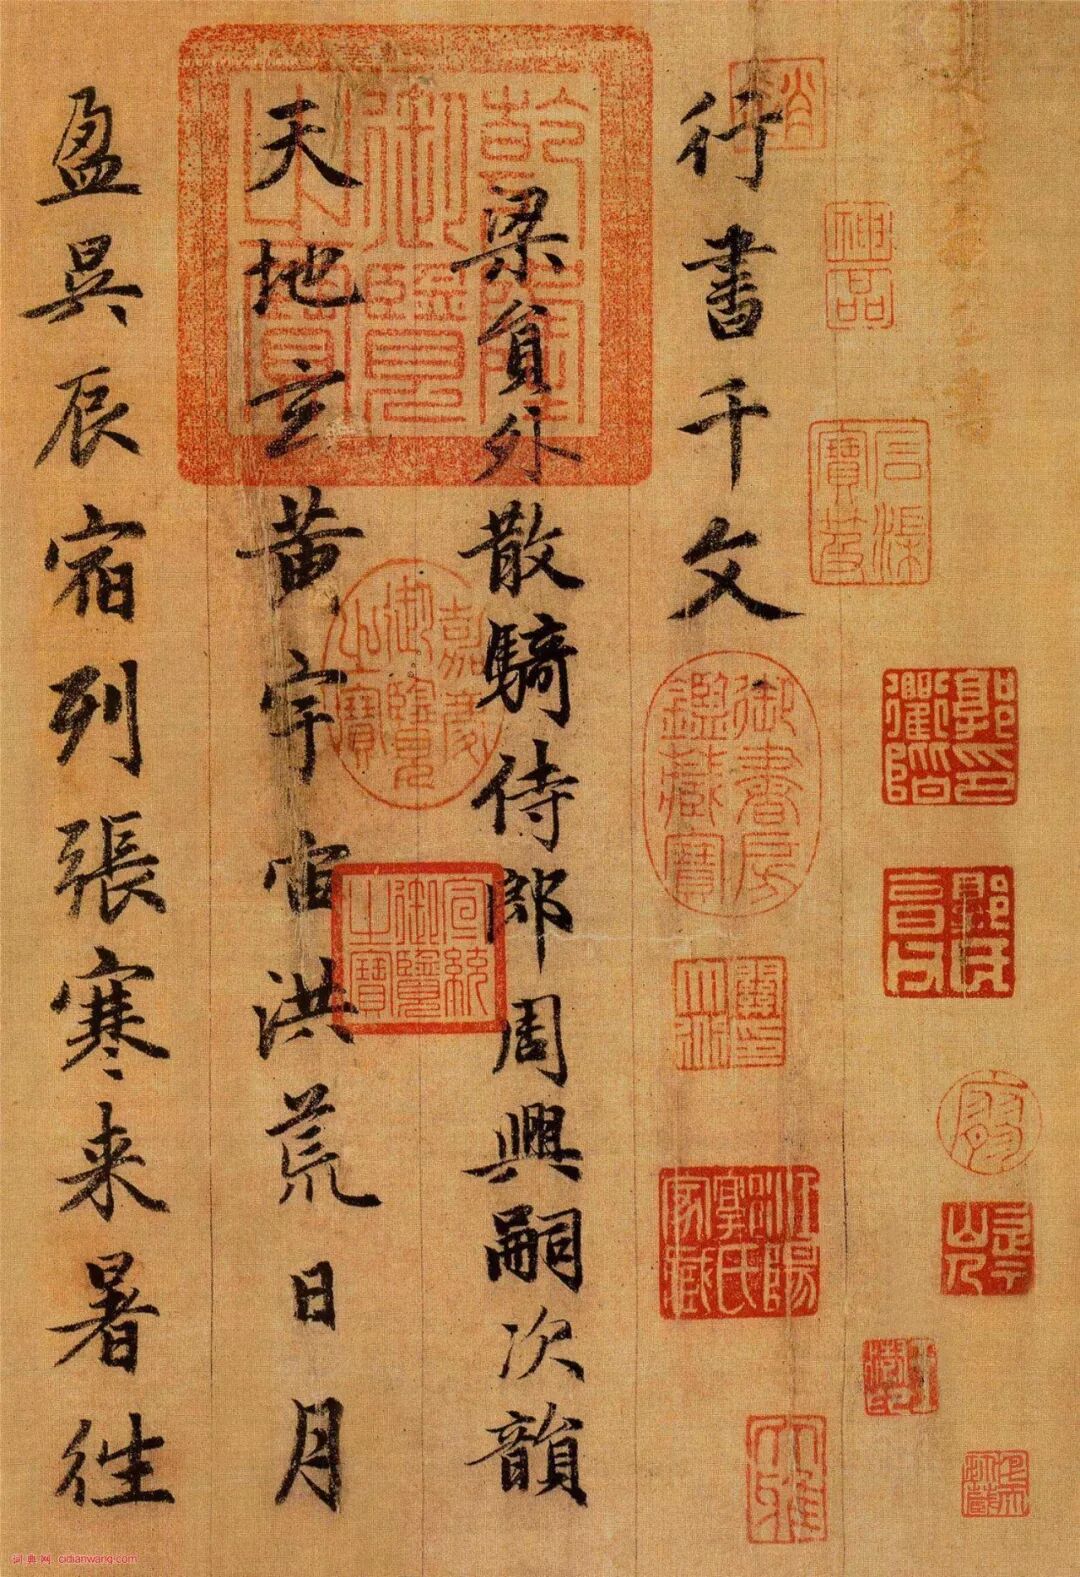 行書千文
梁員外散騎侍郎周興嗣次韻
天地玄黄宇宙洪荒日月
盈昃辰宿列張寒来暑往
乾隆御覽之寶
嘉慶御覽之寶
宣統御覽之寶
御書房鑑藏寶
神品
大雅
词典网 cidianwang.com